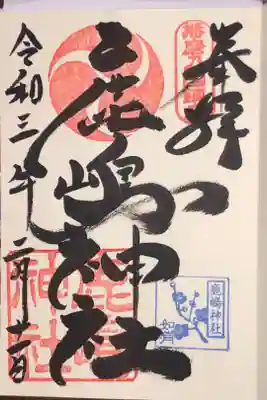 奉拝
鹿嶋神社
令和三年二月十一日
鹿嶋神社
如月